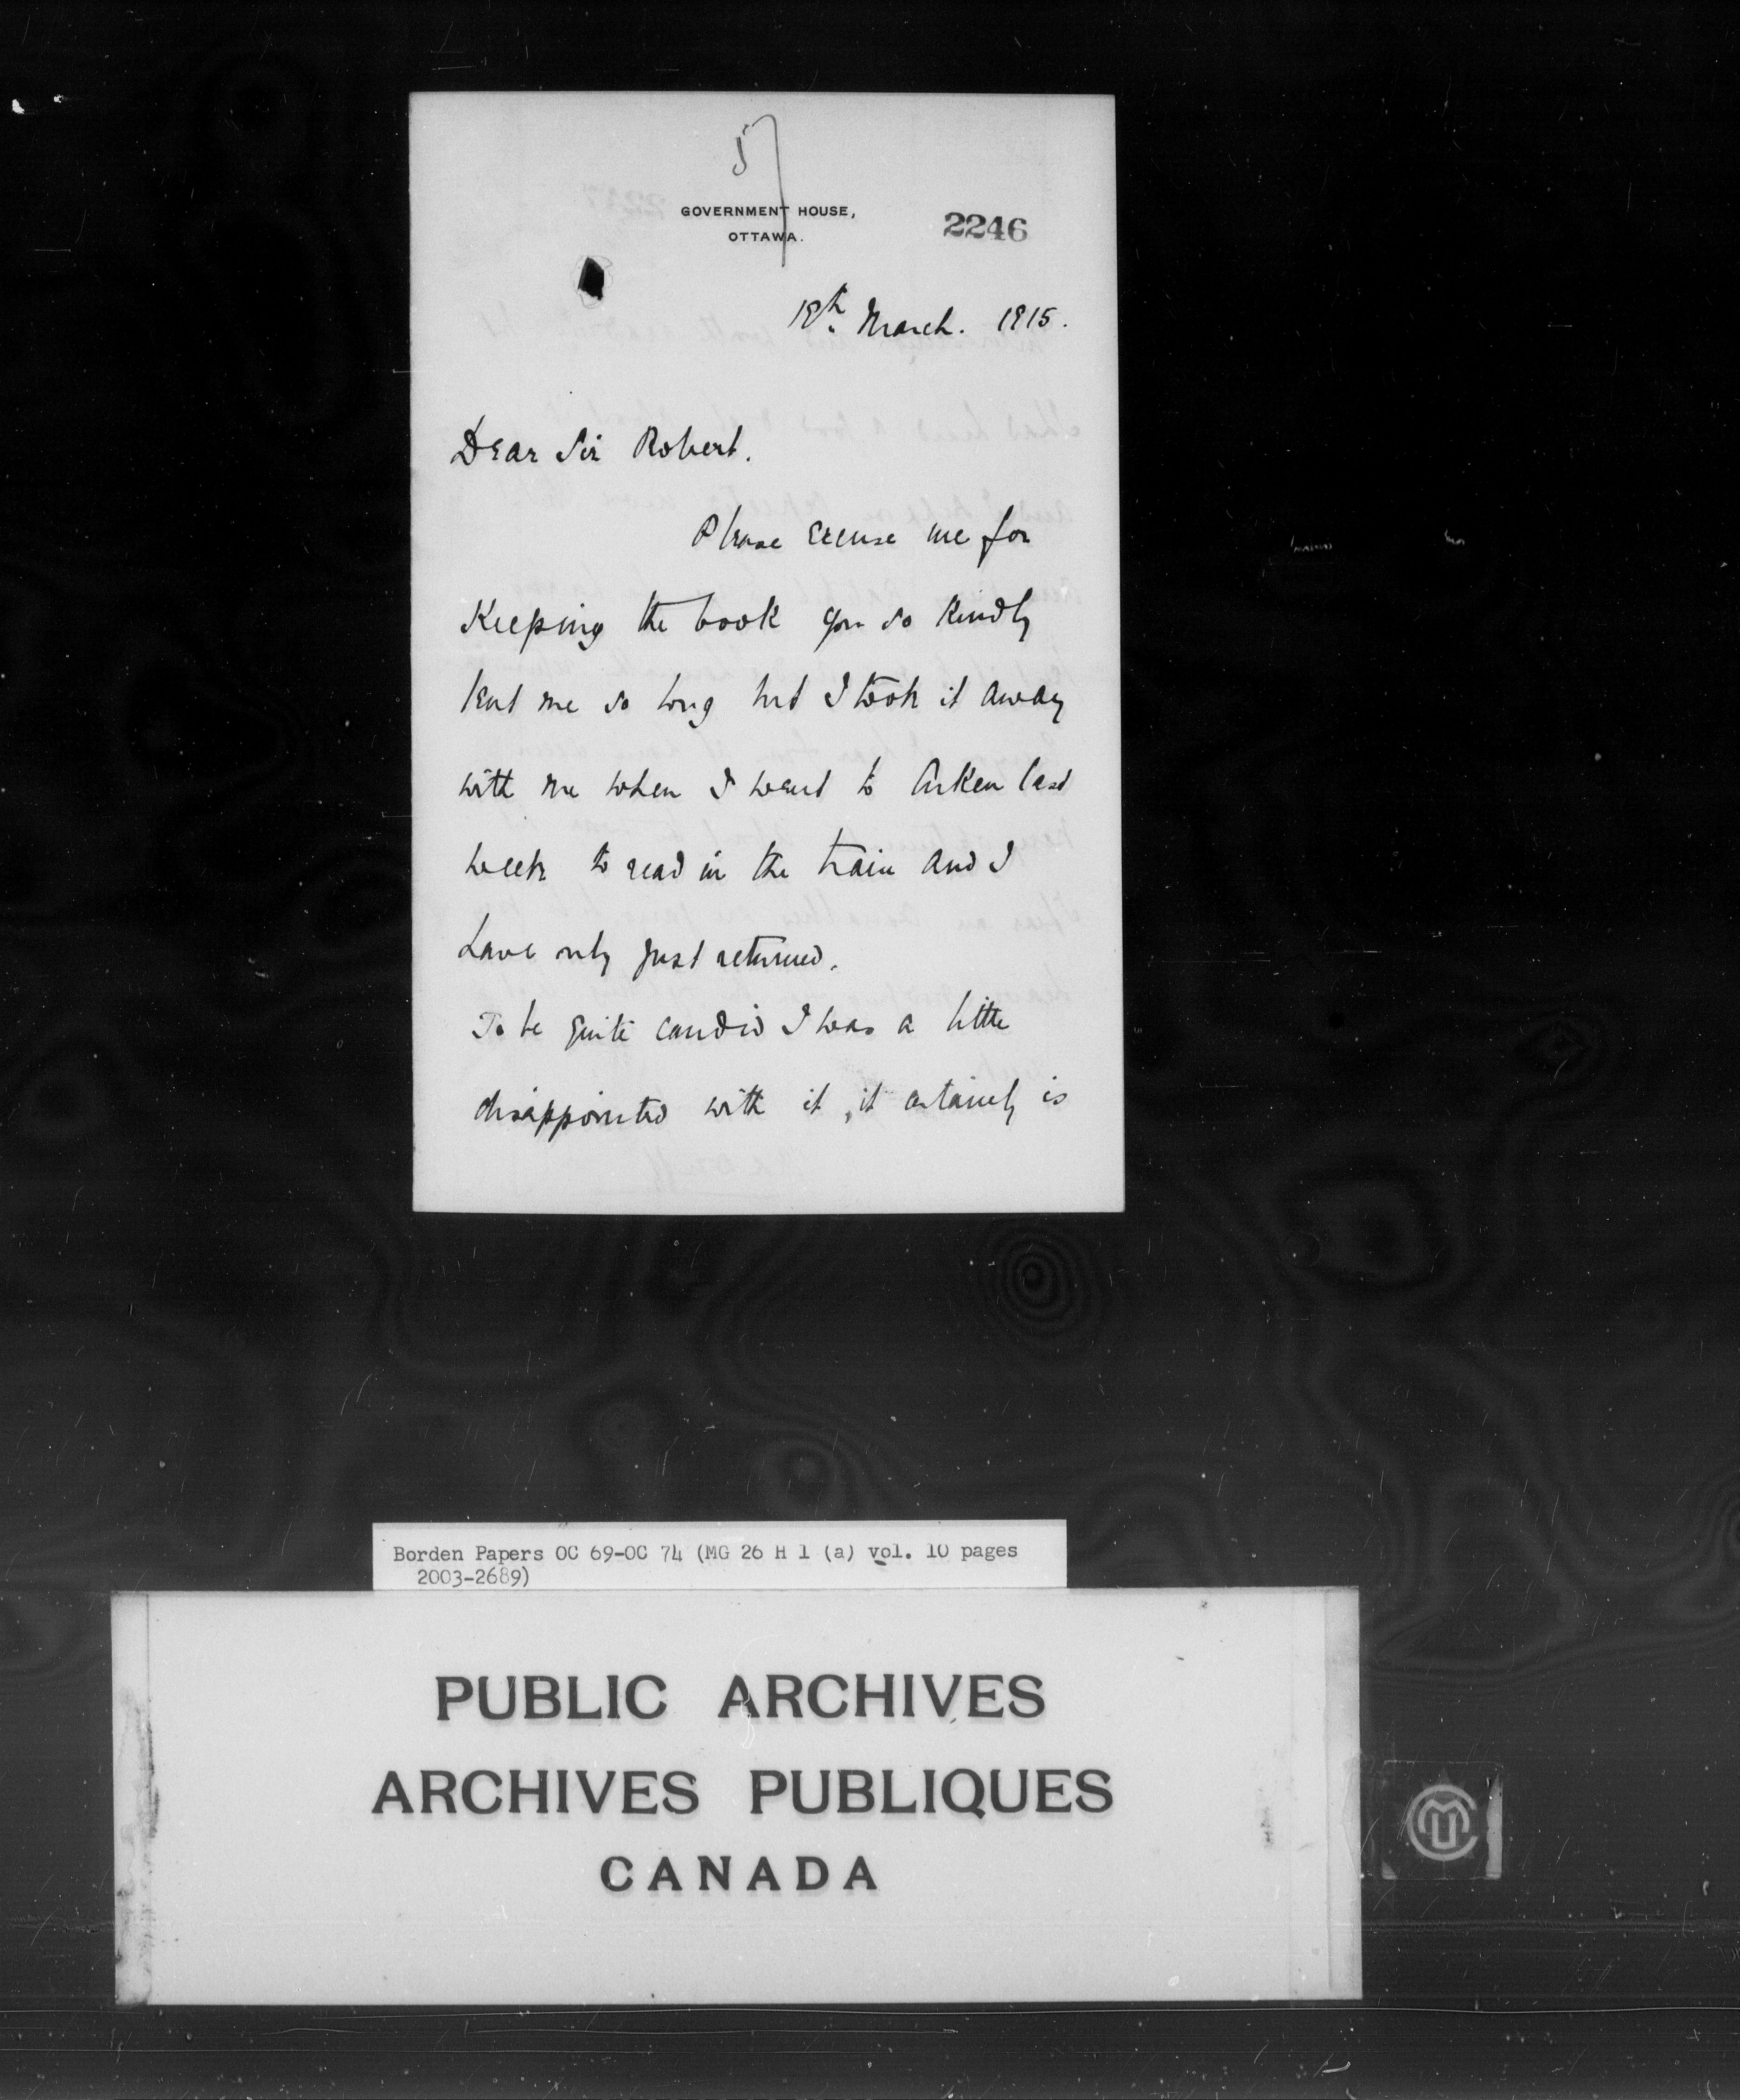 57
GOVERNMENT HOUSE,
OTTAWA.
2246
18th March. 1915.
Dear Sir Robert.
Please excuse me for
Keeping the book you so kindly
lent me so long but I took it away
with me when I went to Aiken last
week to read in the train and I
have only just returned.
To be quite candid I was a little
disappointed with it, it certainly is
Borden Papers OC 69-OC 74 (MG 26 H 1 (a) vol. 10 pages
2003-2689)
PUBLIC ARCHIVES
ARCHIVES PUBLIQUES
CANADA